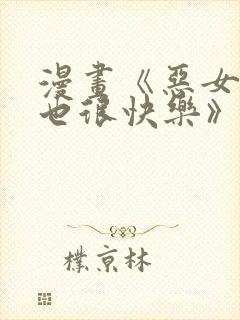 漫畫《惡女
也很快樂》
樸京林